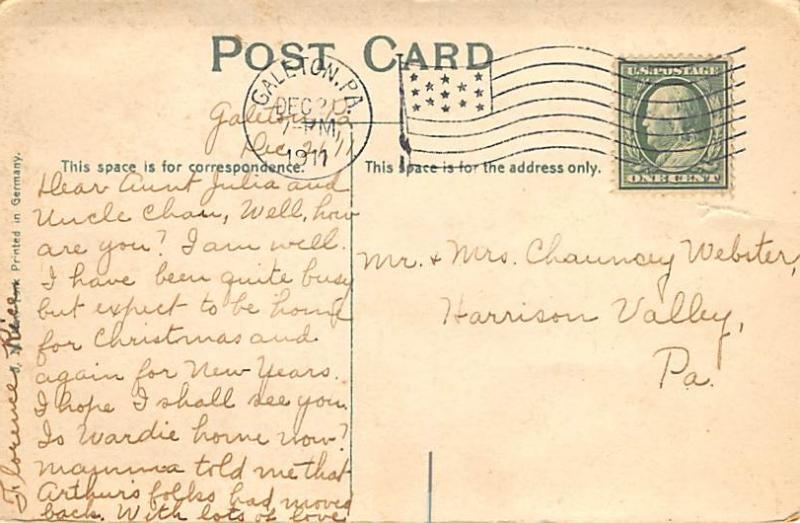 POST CARD
GALETON, PA.
DEC 20
7-PM
1911
U.S. POSTAGE
ONE CENT
Galeton, Pa
Dec. 20/11
This space is for correspondence.
This space is for the address only.
Dear Aunt Julia and
Uncle Chan, Well, how
are you? I am well.
I have been quite busy
but expect to be home
for Christmas and
again for New Years.
I hope I shall see you.
Is Wardie home now?
Mamma told me that
Arthur's folks had moved
back. With lots of love
Florence Rice
Mr. + Mrs. Chauncey Webster,
Harrison Valley,
Pa.
Printed in Germany.